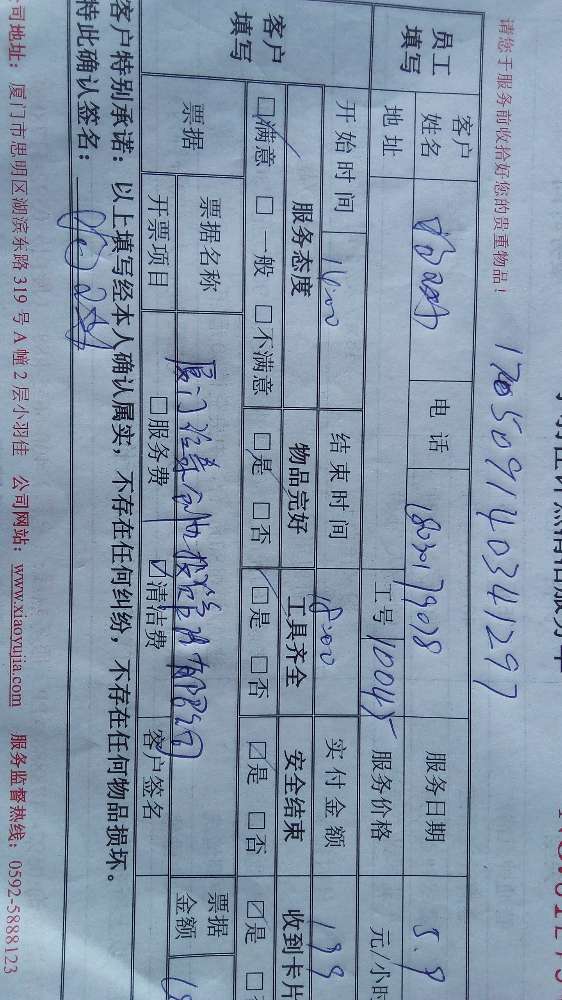 请您于服务前收拾好您的贵重物品！
17050914034297
员工填写
客户姓名
电话
服务日期 5.9
地址
工号 10045
服务价格
元/小时
客户填写
开始时间 14:00
结束时间 18:00
实付金额 199
服务态度
物品完好
工具齐全
安全结束
收到卡片
☑满意 □一般 □不满意
☑是 □否
☑是 □否
☑是 □否
☑是
票据
票据名称
票据金额
开票项目 □服务费 ☑清洁费
客户签名
客户特别承诺：以上填写经本人确认属实，不存在任何纠纷，不存在任何物品损坏。
特此确认签名：
司地址：厦门市思明区湖滨东路 319 号 A 幢 2 层小羽佳 公司网站：www.xiaoyujia.com 服务监督热线：0592-5888123